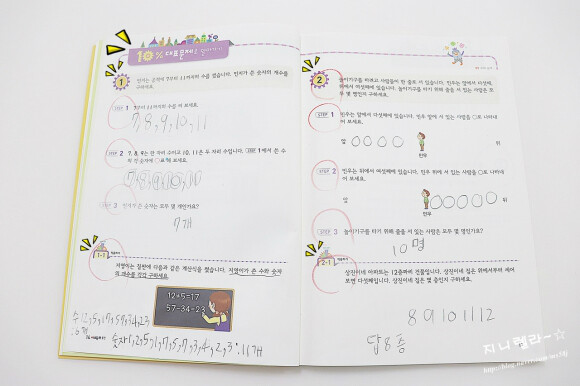 10% 대표문제로 알아가기
1
민지는 공책에 7부터 11까지의 수를 썼습니다. 민지가 쓴 숫자의 개수를
구하세요.
STEP 1 7부터 11까지의 수를 써 보세요.
7, 8, 9, 10, 11
STEP 2 7, 8, 9는 한 자리 수이고 10, 11은 두 자리 수입니다. STEP 1에서 쓴 수
의 각 숫자에 ○표 해 보세요.
7, 8, 9, 10, 11
STEP 3 민지가 쓴 숫자는 모두 몇 개인가요?
7개
1-1
지영이는 칠판에 다음과 같은 계산식을 썼습니다. 지영이가 쓴 수와 숫자
의 개수를 각각 구하세요.
12+5=17
57-34=23
수 12, 5, 17, 57, 34, 23
:6개
숫자 1, 2, 5, 1, 7, 5, 7, 3, 4, 2, 3 :11개
2
놀이기구를 타려고 사람들이 한 줄로 서 있습니다. 민우는 앞에서 다섯째,
뒤에서 여섯째에 서 있습니다. 놀이기구를 타기 위해 줄을 서 있는 사람은 모
두 몇 명인지 구하세요.
STEP 1 민우는 앞에서 다섯째에 서 있습니다. 민우 앞에 서 있는 사람을 ○로 나타내
어 보세요.
앞 ○○○○ 뒤
민우
STEP 2 민우는 뒤에서 여섯째에 서 있습니다. 민우 뒤에 서 있는 사람을 ○로 나타내
어 보세요.
앞 ○○○○○ 뒤
민우
STEP 3 놀이기구를 타기 위해 줄을 서 있는 사람은 모두 몇 명인가요?
10명
2-1
상진이네 아파트는 12층짜리 건물입니다. 상진이네 집은 위에서부터 세어
보면 다섯째입니다. 상진이네 집은 몇 층인지 구하세요.
8 9 10 11 12
답 8층
지니켈라~☆